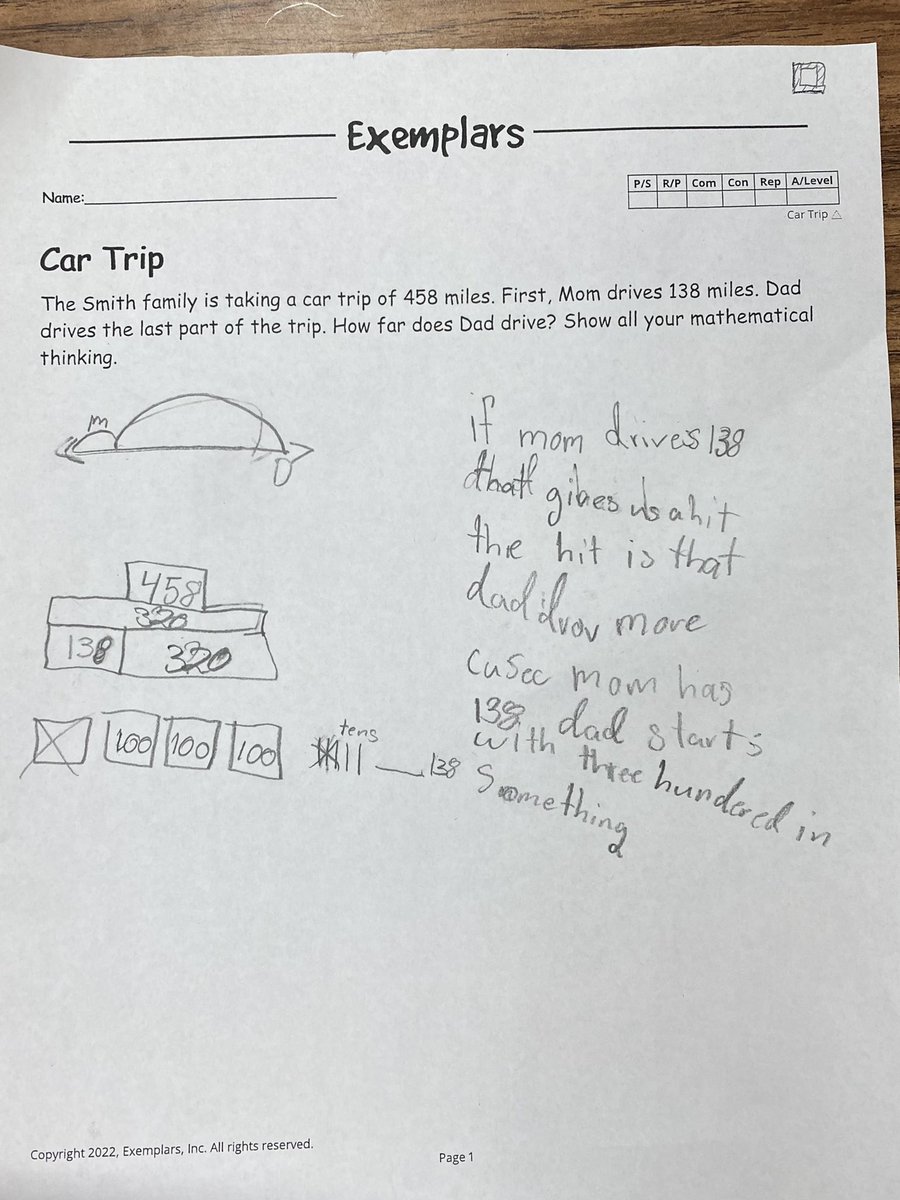 Exemplars
Name:
P/S R/P Com Con Rep A/Level
Car Trip
Car Trip
The Smith family is taking a car trip of 458 miles. First, Mom drives 138 miles. Dad
drives the last part of the trip. How far does Dad drive? Show all your mathematical
thinking.
m
D
458
320
138 320
100 100 100 tens 138
if mom drives 138
that gibes us a hit
the hit is that
dad drov more
cusec mom has
138 dad starts
with three hundered in
something
Copyright 2022, Exemplars, Inc. All rights reserved.
Page 1